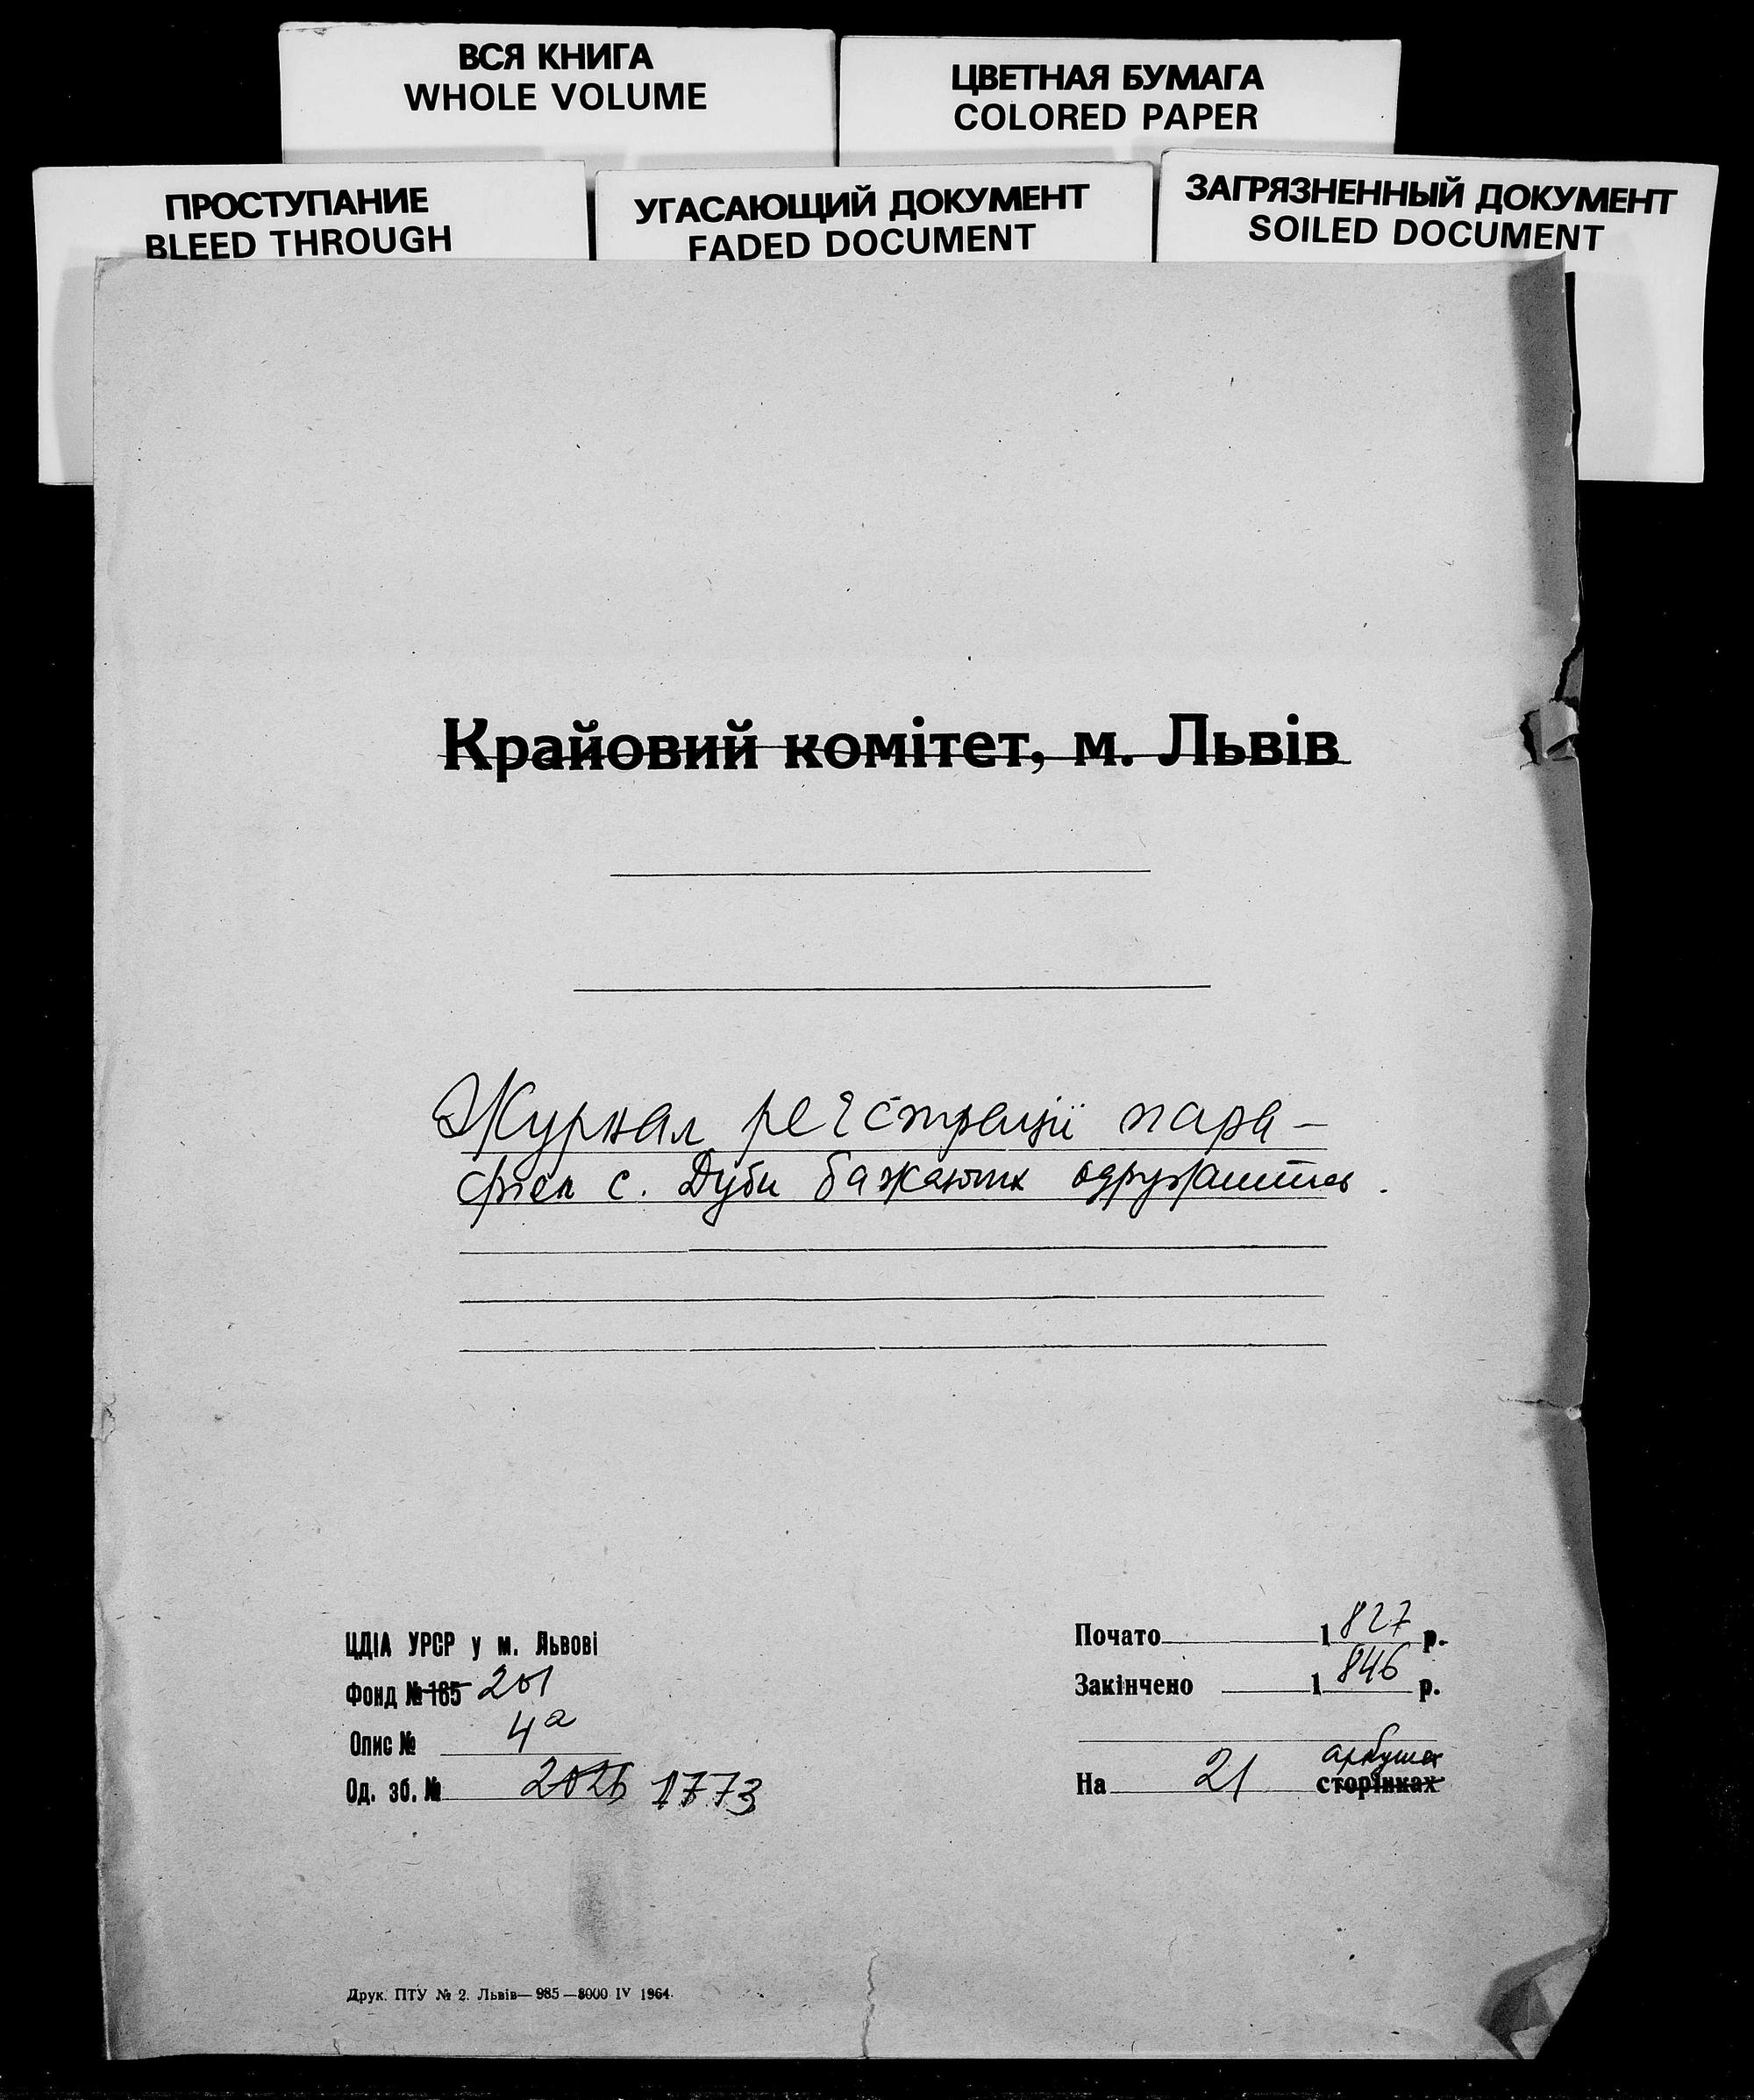 ВСЯ КНИГА
WHOLE VOLUME
ЦВЕТНАЯ БУМАГА
COLORED PAPER
ПРОСТУПАНИЕ
BLEED THROUGH
УГАСАЮЩИЙ ДОКУМЕНТ
FADED DOCUMENT
ЗАГРЯЗНЕННЫЙ ДОКУМЕНТ
SOILED DOCUMENT
Крайовий комітет, м. Львів
Журнал реєстрації пара-
фіян с. Дуби бажаючих одружитись.
ЦДІА УРСР у м. Львові
Фонд № 165 201
Опис № 4а
Од. зб. № 2026 1773
Почато 1827 р.
Закінчено 1846 р.
аркушах
На 21 сторінках
Друк. ПТУ № 2. Львів—985—8000 IV 1964.